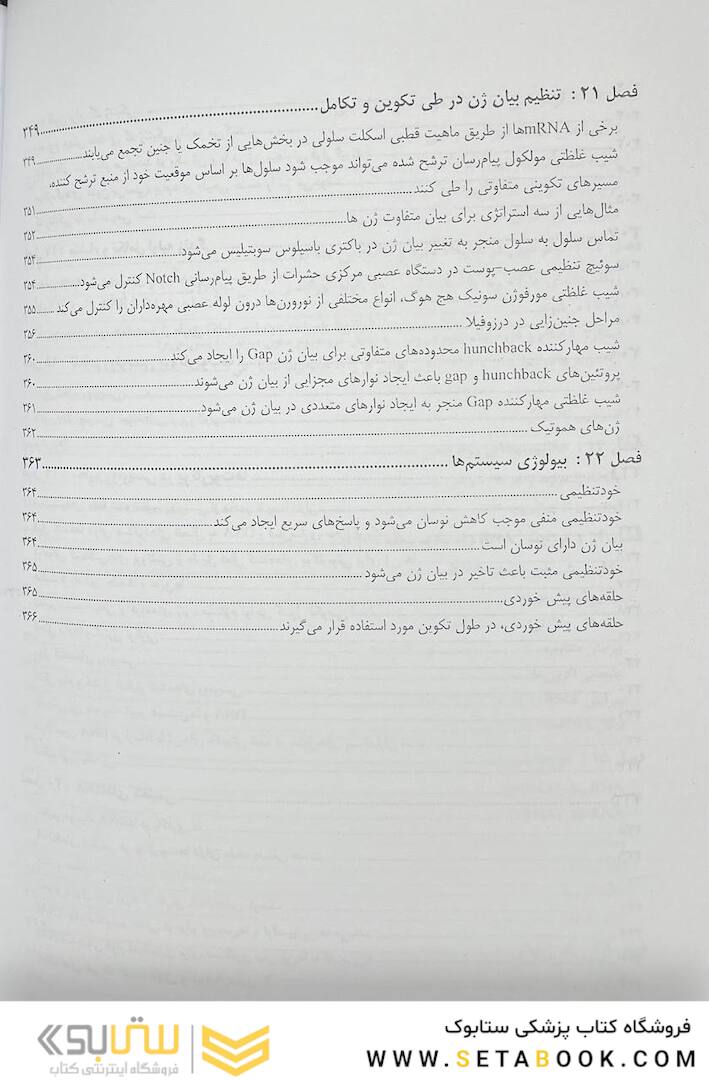 فصل ۲۱ : تنظیم بیان ژن در طی تکوین و تکامل ۳۴۹
برخی از mRNAها از طریق ماهیت قطبی اسکلت سلولی در بخش‌هایی از تخمک یا جنین تجمع می‌یابند ۳۴۹
شیب غلظتی مولکول پیام‌رسان ترشح شده می‌تواند موجب شود سلول‌ها بر اساس موقعیت خود از منبع ترشح کننده،
مسیرهای تکوینی متفاوتی را طی کنند ۳۵۱
مثال‌هایی از سه استراتژی برای بیان متفاوت ژن ها ۳۵۲
تماس سلول به سلول منجر به تغییر بیان ژن در باکتری باسیلوس سوبتیلیس می‌شود ۳۵۴
سوئیچ تنظیمی عصب-پوست در دستگاه عصبی مرکزی حشرات از طریق پیام‌رسانی Notch کنترل می‌شود ۳۵۴
شیب غلظتی مورفوژن سونیک هج هوگ، انواع مختلفی از نورورن‌ها درون لوله عصبی مهره‌داران را کنترل می‌کند ۳۵۵
مراحل جنین‌زایی در درزوفیلا ۳۵۶
شیب مهارکننده hunchback محدوده‌های متفاوتی برای بیان ژن Gap را ایجاد می‌کند ۳۶۰
پروتئین‌های hunchback و gap باعث ایجاد نوارهای مجزایی از بیان ژن می‌شوند ۳۶۰
شیب غلظتی مهارکننده Gap منجر به ایجاد نوارهای متعددی در بیان ژن می‌شود ۳۶۱
ژن‌های هموتیک ۳۶۲
فصل ۲۲ : بیولوژی سیستم‌ها ۳۶۳
خودتنظیمی ۳۶۴
خودتنظیمی منفی موجب کاهش نوسان می‌شود و پاسخ‌های سریع ایجاد می‌کند ۳۶۴
بیان ژن دارای نوسان است ۳۶۴
خودتنظیمی مثبت باعث تاخیر در بیان ژن می‌شود ۳۶۵
حلقه‌های پیش خوردی ۳۶۵
حلقه‌های پیش خوردی، در طول تکوین مورد استفاده قرار می‌گیرند ۳۶۶
فروشگاه کتاب پزشکی ستابوک
WWW.SETABOOK.COM
ستابوک
فروشگاه اینترنتی کتاب